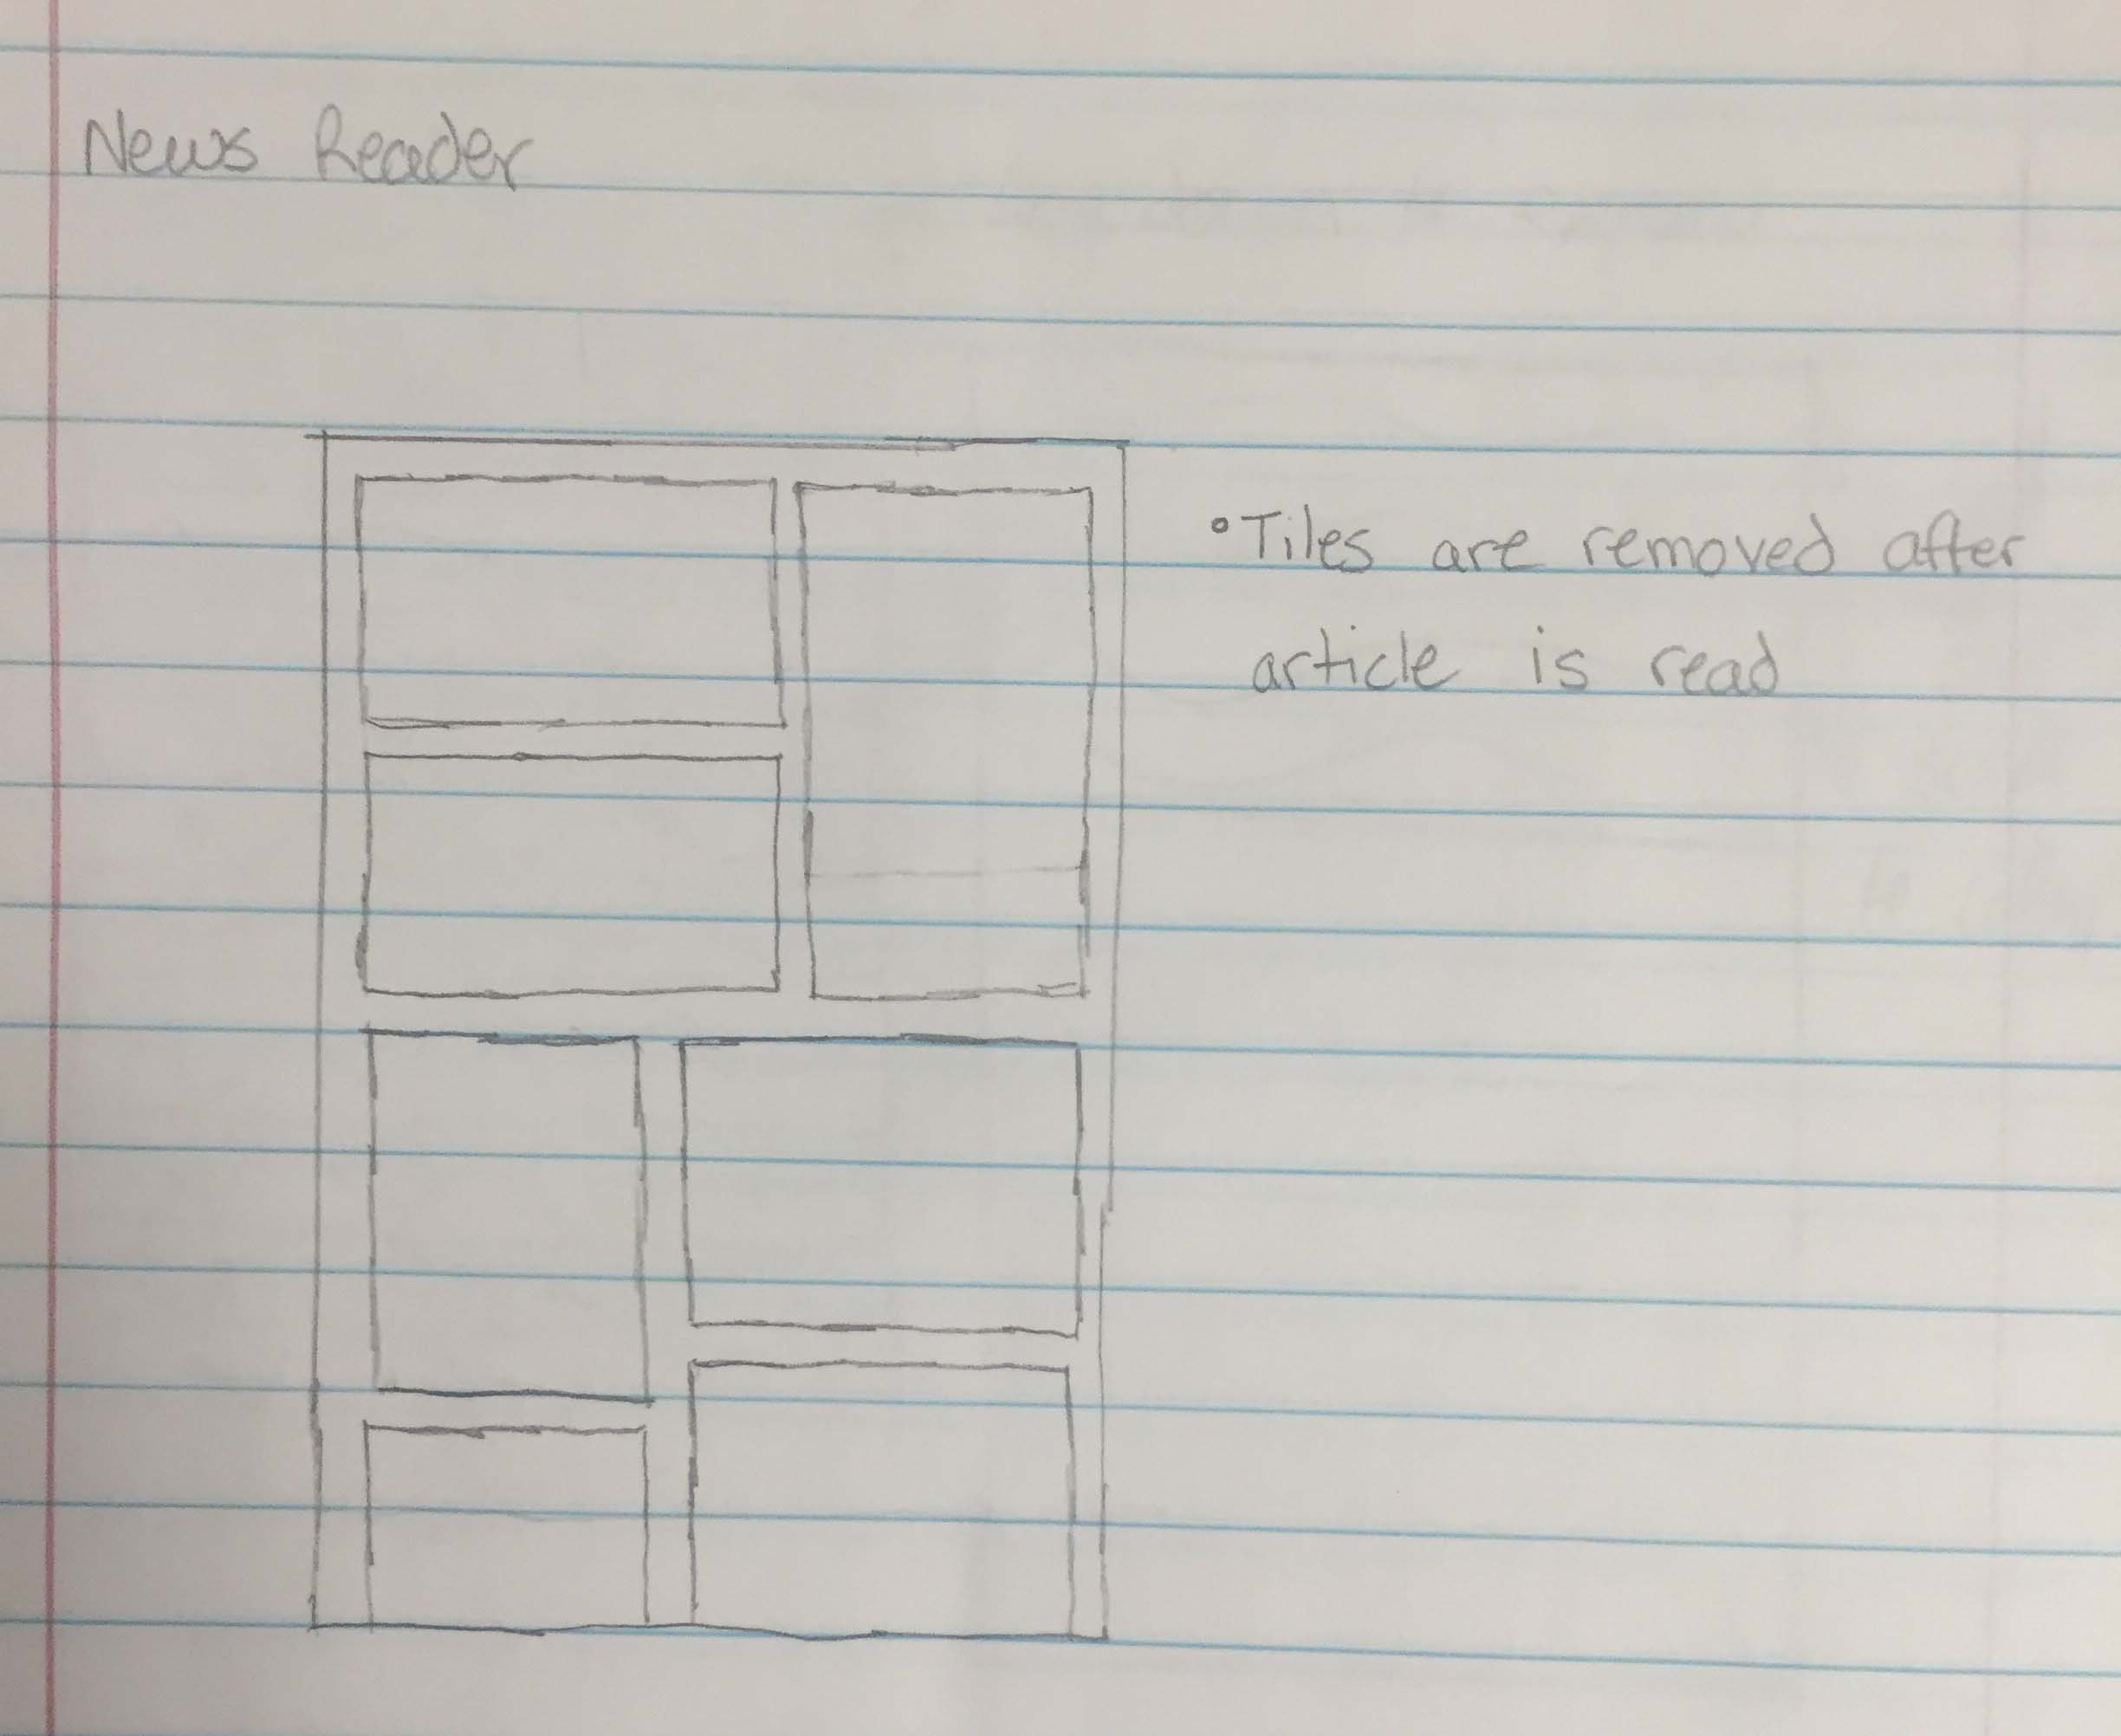 News Reader
°Tiles are removed after
article is read